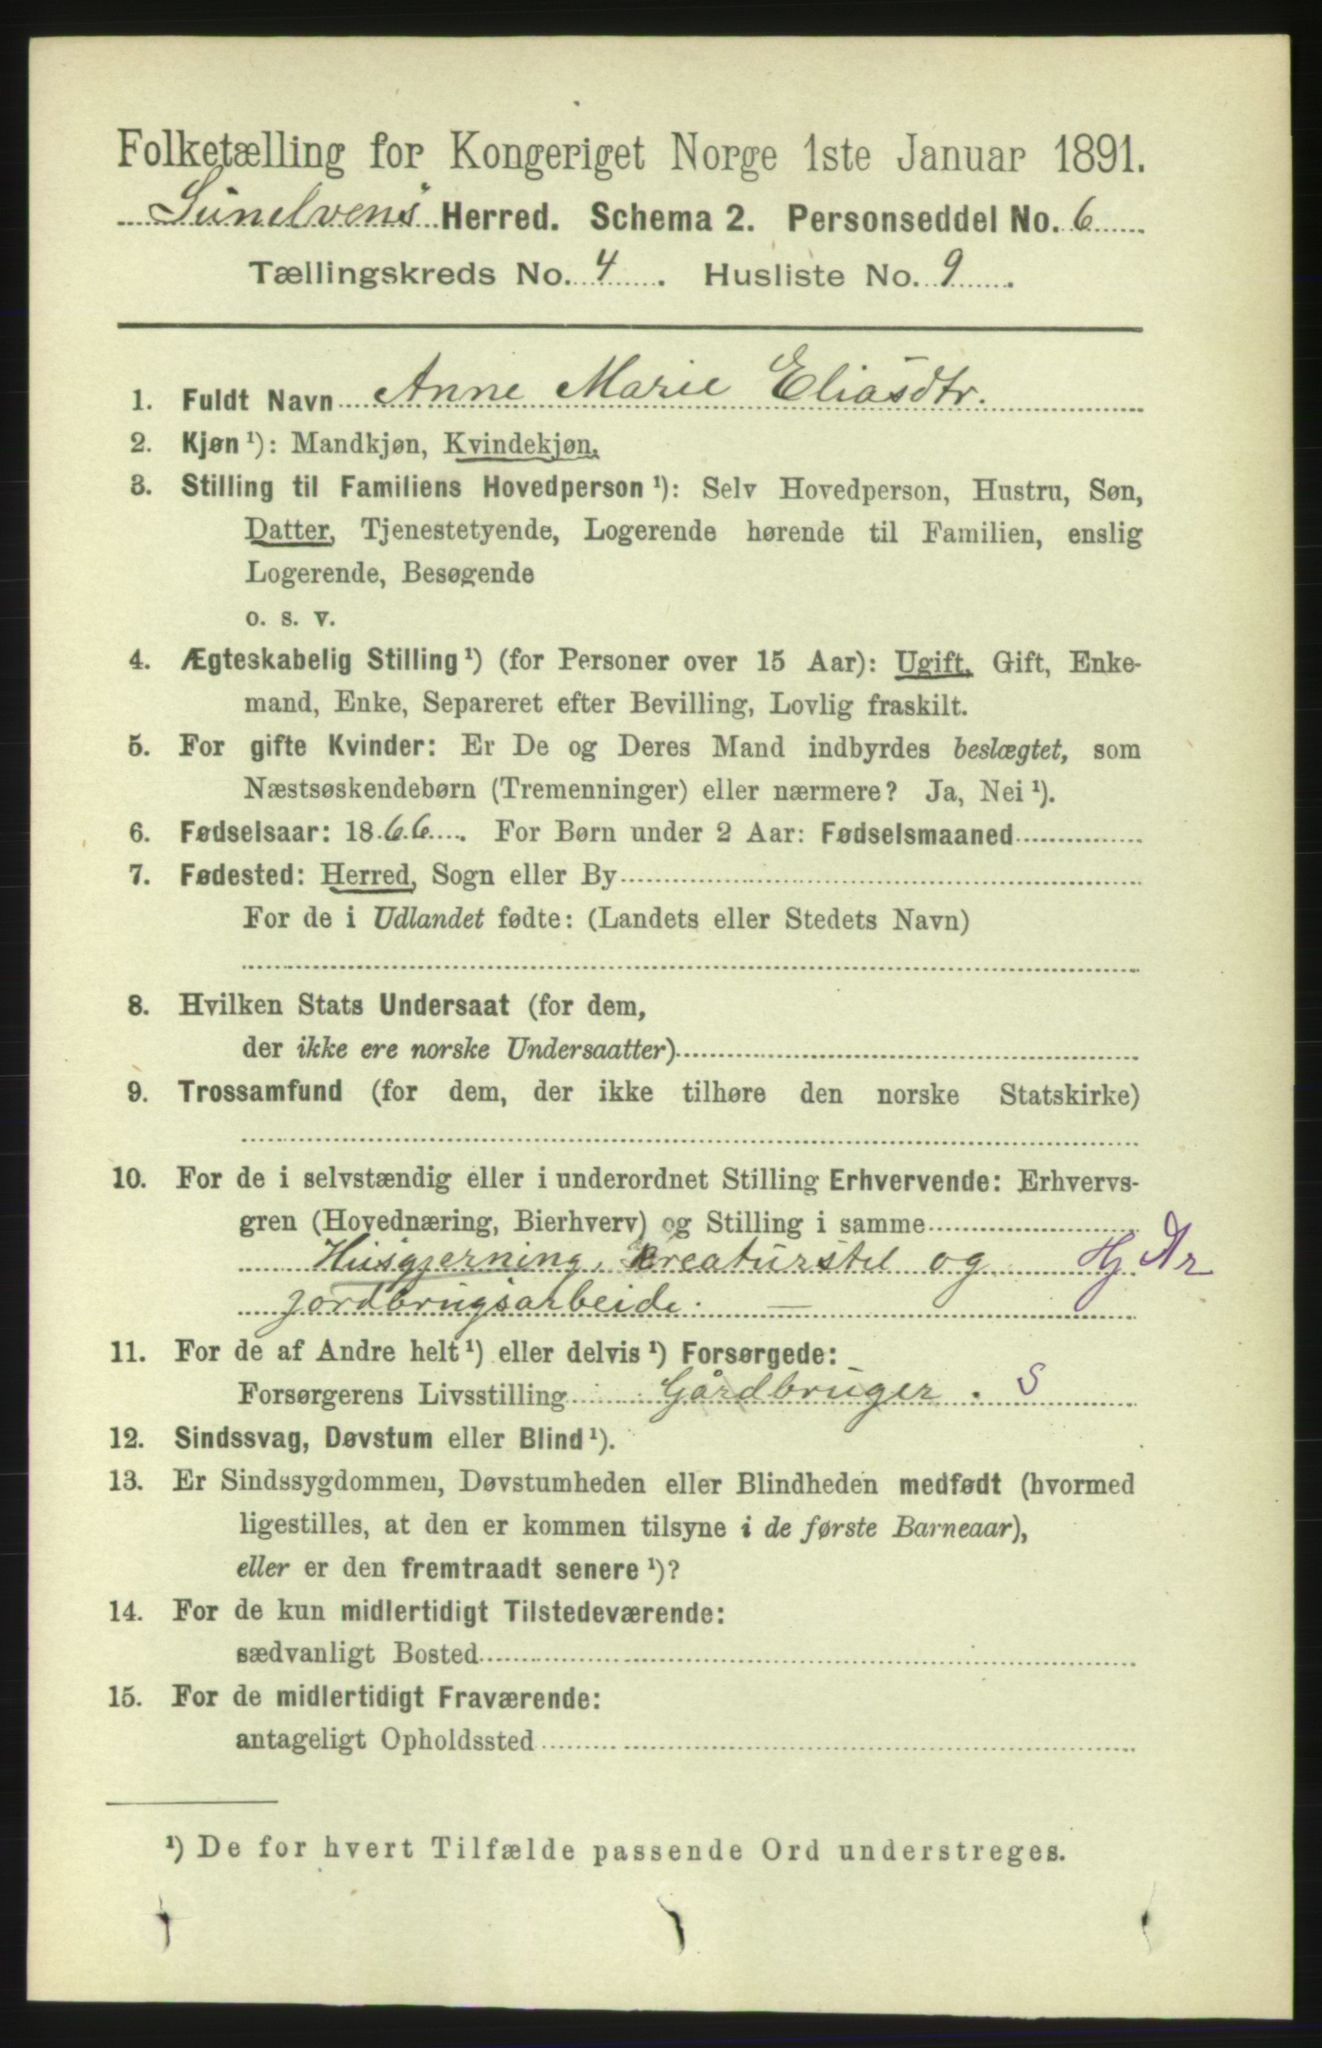 Folketælling for Kongeriget Norge 1ste Januar 1891.
Sunelvens Herred. Schema 2. Personseddel No. 6
Tællingskreds No. 4. Husliste No. 9.
1. Fuldt Navn Anne Marie Eliasdtr.
2. Kjøn ¹): Mandkjøn, Kvindekjøn.
3. Stilling til Familiens Hovedperson ¹): Selv Hovedperson, Hustru, Søn,
Datter, Tjenestetyende, Logerende hørende til Familien, enslig
Logerende, Besøgende
o. s. v.
4. Ægteskabelig Stilling ¹) (for Personer over 15 Aar): Ugift, Gift, Enke-
mand, Enke, Separeret efter Bevilling, Lovlig fraskilt.
5. For gifte Kvinder: Er De og Deres Mand indbyrdes beslægtet, som
Næstsøskendebørn (Tremenninger) eller nærmere? Ja, Nei ¹).
6. Fødselsaar: 1866. For Børn under 2 Aar: Fødselsmaaned
7. Fødested: Herred, Sogn eller By
For de i Udlandet fødte: (Landets eller Stedets Navn)
8. Hvilken Stats Undersaat (for dem,
der ikke ere norske Undersaatter)
9. Trossamfund (for dem, der ikke tilhøre den norske Statskirke)
10. For de i selvstændig eller i underordnet Stilling Erhvervende: Erhvervs-
gren (Hovednæring, Bierhverv) og Stilling i samme
Husgjerning, kreaturstel og Hj Ar
jordbrugsarbeide. —
11. For de af Andre helt ¹) eller delvis ¹) Forsørgede:
Forsørgerens Livsstilling Gårdbruger. S
12. Sindssvag, Døvstum eller Blind ¹).
13. Er Sindssygdommen, Døvstumheden eller Blindheden medfødt (hvormed
ligestilles, at den er kommen tilsyne i de første Barneaar),
eller er den fremtraadt senere ¹)?
14. For de kun midlertidigt Tilstedeværende:
sædvanligt Bosted
15. For de midlertidigt Fraværende:
antageligt Opholdssted
¹) De for hvert Tilfælde passende Ord understreges.